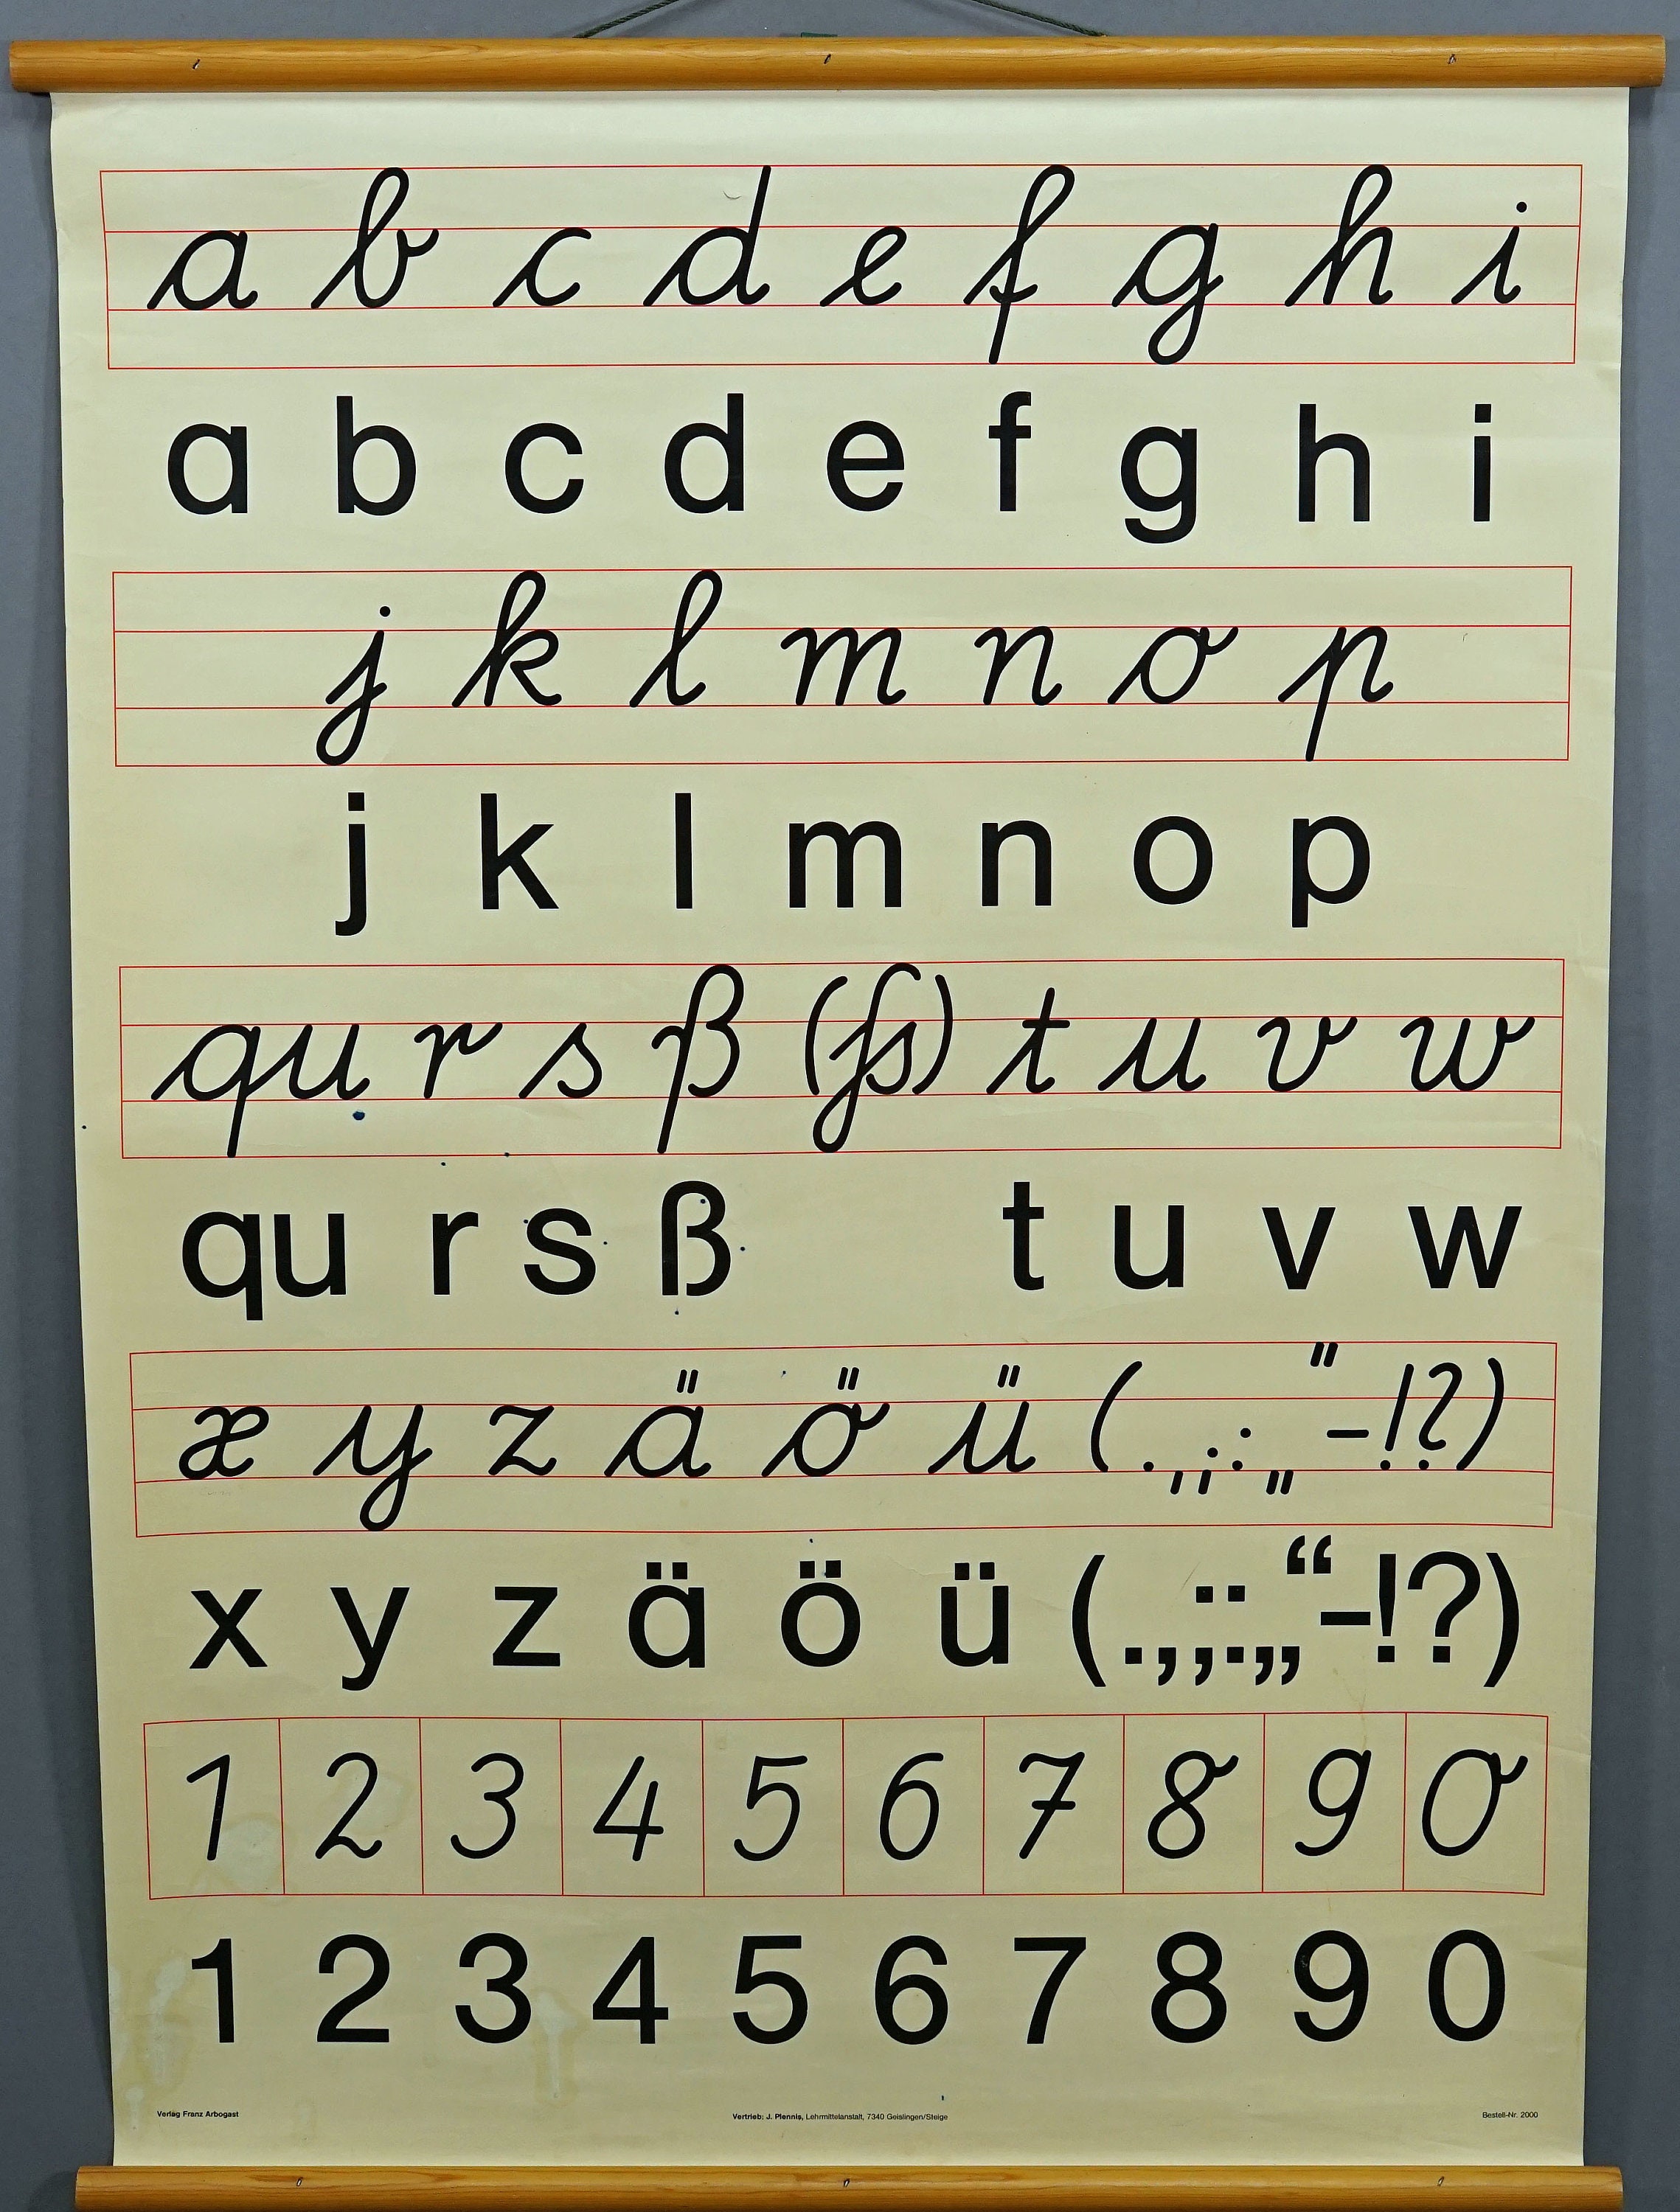 a b c d e f g h i
a b c d e f g h i
j k l m n o p
j k l m n o p
qu r s ß (ſs) t u v w
qu r s ß t u v w
x y z ä ö ü (.,;:„“-!?)
x y z ä ö ü (.,;:„“-!?)
1 2 3 4 5 6 7 8 9 0
1 2 3 4 5 6 7 8 9 0
Verlag Franz Arbogast
Vertrieb: J. Plennis, Lehrmittelanstalt, 7340 Geislingen/Steige
Bestell-Nr. 2000